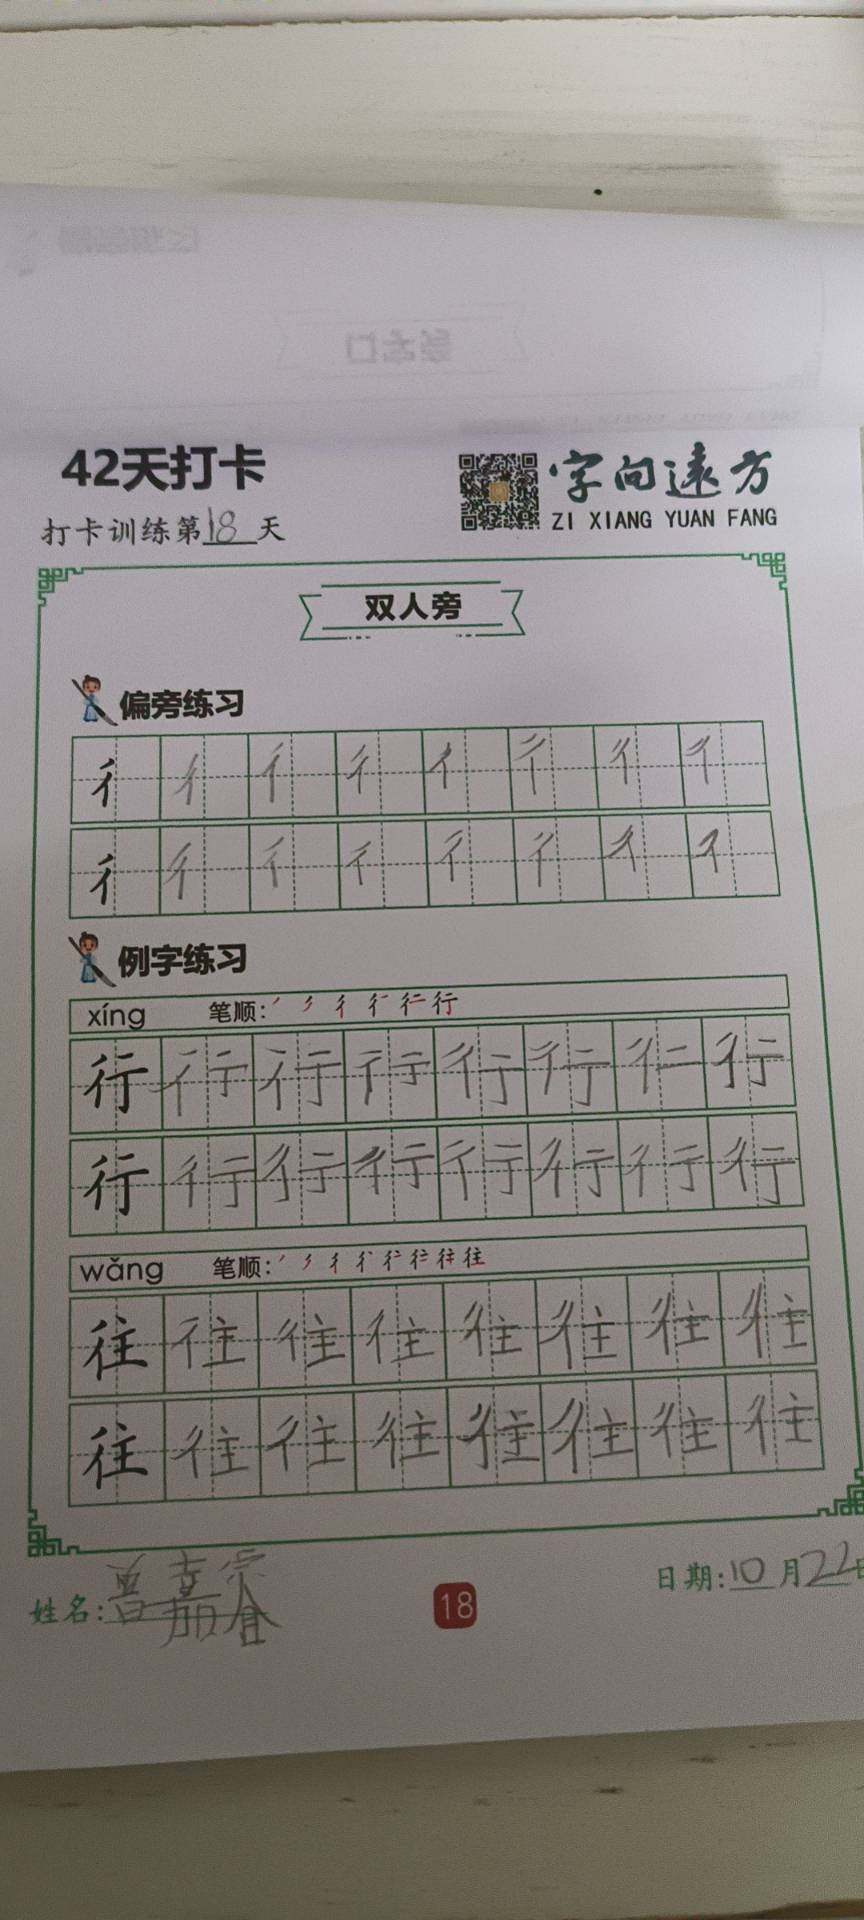 42天打卡
字向远方
ZI XIANG YUAN FANG
打卡训练第18天
双人旁
偏旁练习
彳 彳 彳 彳 彳 彳 彳 彳
彳 彳 彳 彳 彳 彳 彳 彳
例字练习
xíng 笔顺:
行 行 行 行 行 行 行 行
行 行 行 行 行 行 行 行
wǎng 笔顺:
往 往 往 往 往 往 往 往
往 往 往 往 往 往 往 往
姓名:
18
日期:10月22日